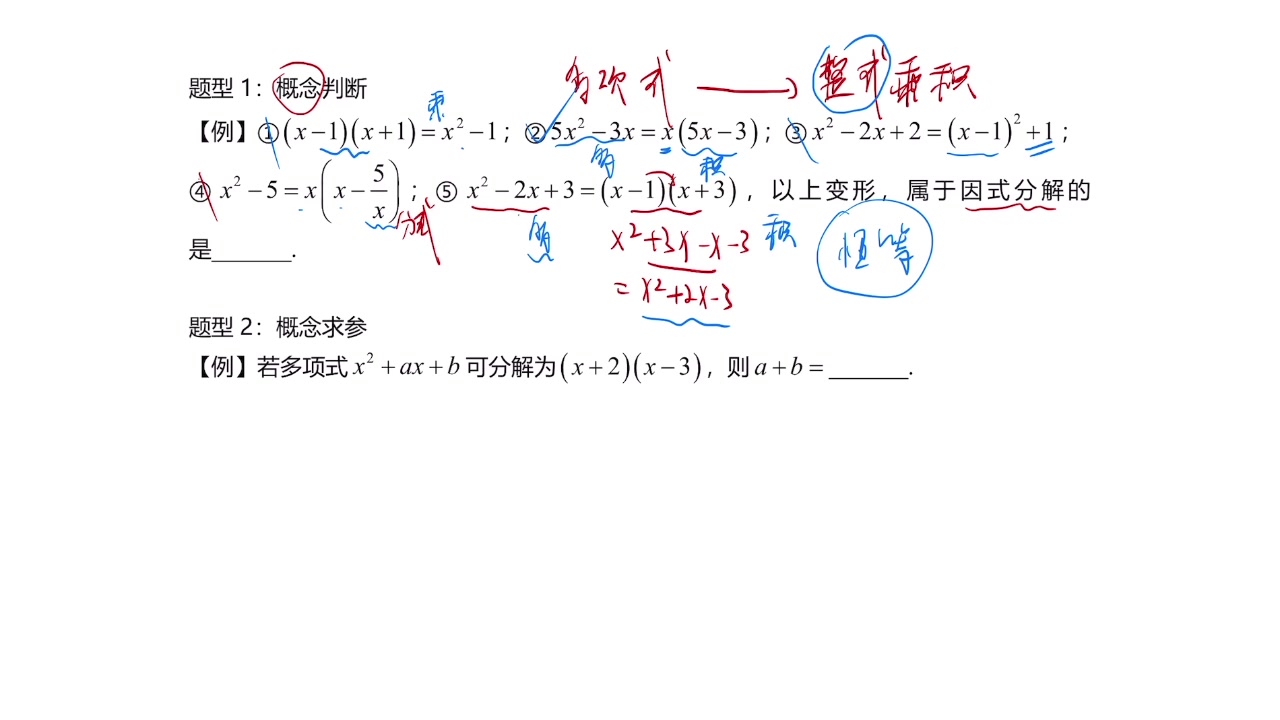 多项式 → 整式乘积
题型 1：概念判断
乘
【例】①(x−1)(x+1)=x²−1；②5x²−3x=x(5x−3)；③x²−2x+2=(x−1)²+1；
多 积
④x²−5=x(x−5/x)；⑤x²−2x+3=(x−1)(x+3)，以上变形，属于因式分解的
分式 多 x²+3x−x−3 积 恒等
是______.
=x²+2x−3
题型 2：概念求参
【例】若多项式x²+ax+b可分解为(x+2)(x−3)，则a+b=______.